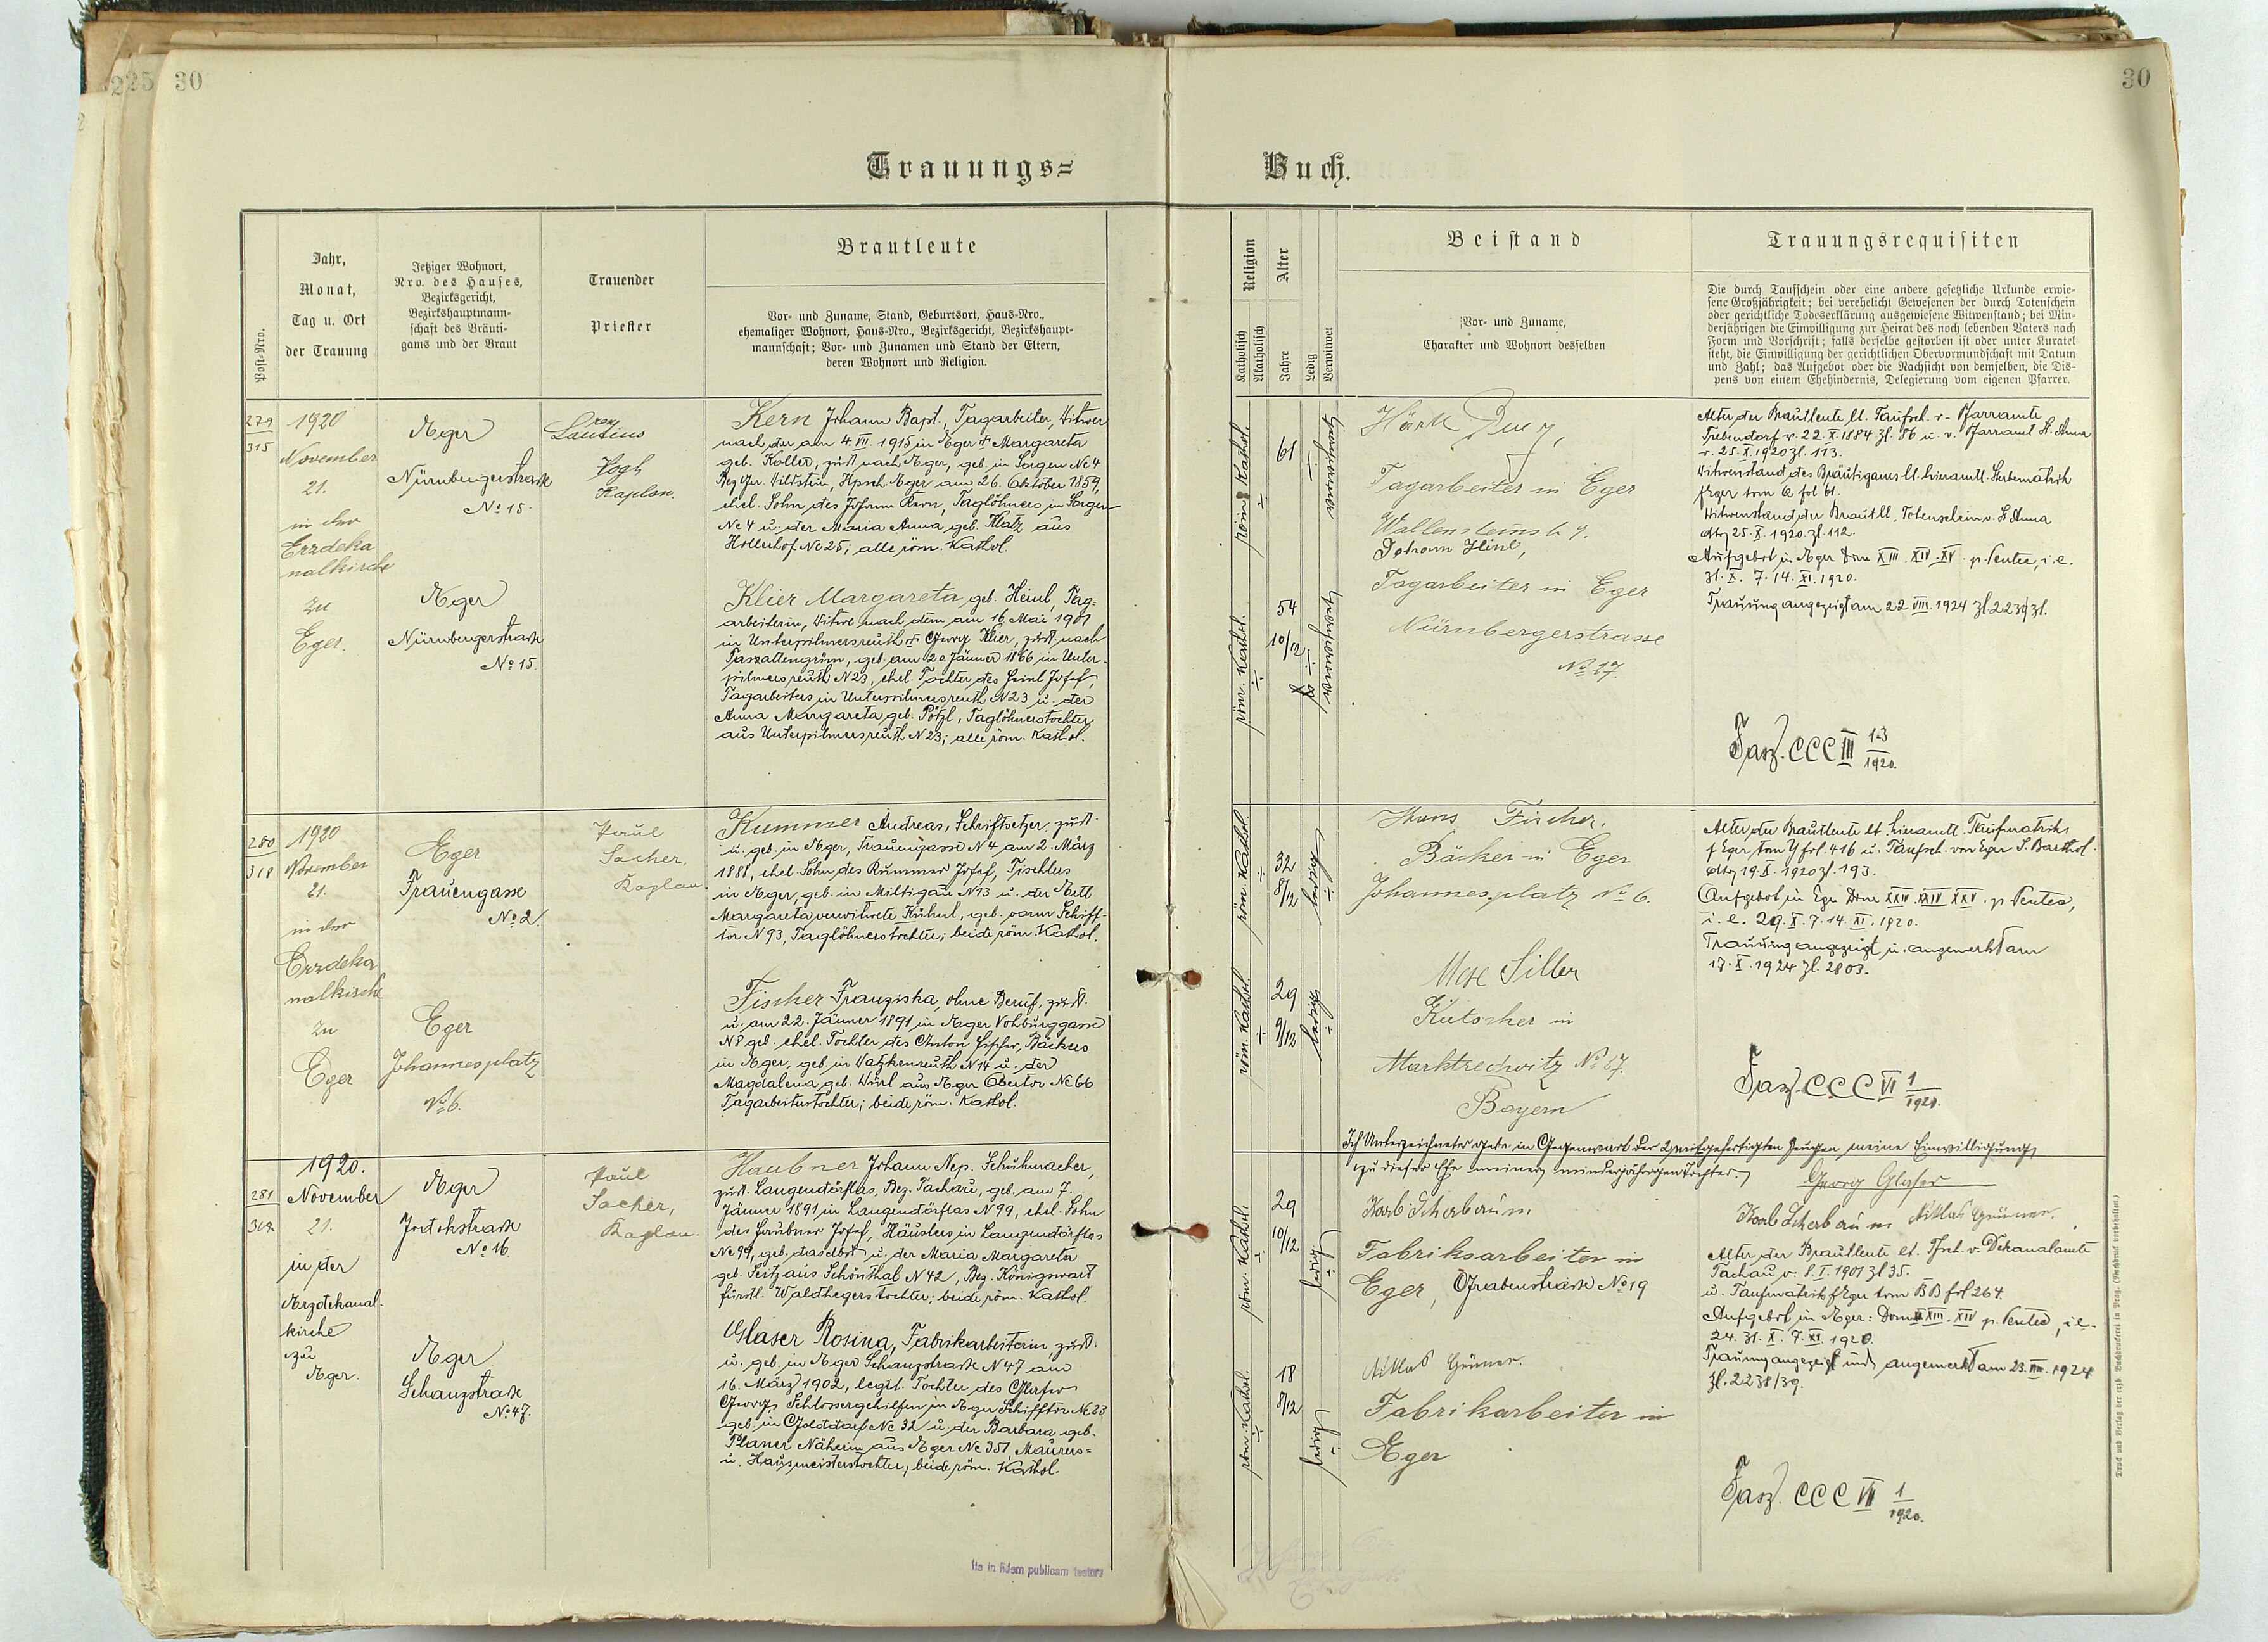 225 30
30
Trauungs=
Buch.
Post-Nro.
Jahr,
Monat,
Tag u. Ort
der Trauung
Jetziger Wohnort,
Nro. des Hauses,
Bezirksgericht,
Bezirkshauptmann-
schaft des Bräuti-
gams und der Braut
Trauender
Priester
Brautleute
Vor- und Zuname, Stand, Geburtsort, Haus-Nro.,
ehemaliger Wohnort, Haus-Nro., Bezirksgericht, Bezirkshaupt-
mannschaft; Vor- und Zunamen und Stand der Eltern,
deren Wohnort und Religion.
Religion
Katholisch
Akatholisch
Alter
Jahre
Ledig
Verwitwet
Beistand
Vor- und Zuname,
Charakter und Wohnort desselben
Trauungsrequisiten
Die durch Taufschein oder eine andere gesetzliche Urkunde erwie-
sene Großjährigkeit; bei verehelicht Gewesenen der durch Totenschein
oder gerichtliche Todeserklärung ausgewiesene Witwenstand; bei Min-
derjährigen die Einwilligung zur Heirat des noch lebenden Vaters nach
Form und Vorschrift; falls derselbe gestorben ist oder unter Kuratel
steht, die Einwilligung der gerichtlichen Obervormundschaft mit Datum
und Zahl; das Aufgebot oder die Nachsicht von demselben, die Dis-
pens von einem Ehehindernis, Delegierung vom eigenen Pfarrer.
279
315
1920
November
21.
in der
Erzdeka
nalkirche
zu
Eger.
Eger
Nürnbergerstrasse
No 15.
Eger
Nürnbergerstrasse
No 15.
Vogl
Kaplan.
Kern Johann Bapt., Tagarbeiter, Witwer
nach der am 4. VII. 1915 in Eger † Margareta
geb. Koller, zust. nach Eger, geb. in Sorgen No 4
Bez Ger. Wildstein, Hpsch Eger am 26. Oktober 1859,
ehel. Sohn des Johann Kern, Taglöhners in Sorgen
No 4 u. der Maria Anna geb. Klatz, aus
Höllerhof No 25; alle röm. Kathol.
Klier Margareta, geb. Heinl, Tag-
arbeiterin, Witwe nach dem am 16. Mai 1901
in Unterpilmersreuth † Georg Klier, zust. nach
geb. am 20. Jänner 1866 in Unter-
pilmersreuth N 23, ehel. Tochter des Heinl Josef,
Tagarbeiters in Unterpilmersreuth N 23 u. der
Anna Margareta geb. Pötzl, Taglöhnerstochter
aus Unterpilmersreuth N 23; alle röm. Kathol.
röm. Kathol. 61
röm. Kathol. 54 10/12
Tagarbeiter in Eger
Johann Heinl,
Tagarbeiter in Eger
Nürnbergerstrasse
No 17.
Alter der Brautleute lt. Taufsch. v. Pfarramte
Trebendorf v. 22. X. 1884 Zl. 86 u. v. Pfarramt St. Anna
v. 25. X. 1920 Zl. 113.
Witwenstand des Bräutigams lt. hieramtl. Sterbematrik
f. Eger tom Q fol 61.
Witwenstand der Braut lt. Totenschein v. St. Anna
dto 25. X. 1920. Zl. 112.
Aufgebot in Eger Dom XIII. XIV. XV. p. Pentec., i. e.
31. X. 7. 14. XI. 1920.
Trauung angezeigt am 22 VIII. 1924 Zl 2239 Zl.
Fasz. CCC III 13/1920.
280
318
1920
November
21.
in der
Erzdeka
nalkirche
zu
Eger
Eger
Frauengasse
No 2.
Eger
Johannesplatz
No 6.
Paul
Sacher,
Kaplan.
Kummer Andreas, Schriftsetzer, zust.
u. geb. in Eger, Frauengasse N 4 am 2. März
1888, ehel. Sohn des Kummer Josef, Tischlers
in Eger, geb. in Miltigau N 13 u. der
Margareta verwitwete Kühnl, geb. vorm Schiff-
tor N 93, Taglöhnerstochter; beide röm. Kathol.
Fischer Franziska, ohne Beruf, zust.
u. am 22. Jänner 1891 in Eger Vohburggasse
N 8 geb. ehel. Tochter des Anton Fischer, Bäckers
in Eger, geb. in Watzkenreuth N 14 u. der
Magdalena geb. Würl aus Eger Obertor No 66
Tagarbeiterstochter; beide röm. Kathol.
röm. Kathol. 32 8/12 ledig
röm. Kathol. 29 9/12 ledig
Hans Fischer.
Bäcker in Eger
Johannesplatz No 6.
Siller
Kutscher in
Marktredwitz No 87.
Bayern
Alter der Brautleute lt. hieramtl. Taufmatrik
f. Eger tom Y fol. 416 u. Taufsch. von Eger S. Barthol.
dto 19. X. 1920 Zl. 193.
Aufgebot in Eger Dom XXIII. XXIV XXV. p. Pentec,
i. e. 29. X. 7. 14. XI. 1920.
Trauung angezeigt u. angemerkt am
17. X. 1924 Zl. 2803.
Fasz. CCC VI 1/1920.
Ich Unterzeichneter gebe in Gegenwart der 2 mitgefertigten Zeugen meine Einwilligung
zu dieser Ehe meiner minderjährigen Tochter.
Georg Glaser
Karl Scherbaum Niklas Grüner.
281
319
1920.
November
21.
in der
Erzdekanal-
kirche
zu
Eger.
Eger
No 16
Eger
Schanzstrasse
No 47.
Paul
Sacher,
Kaplan.
Haubner Johann Nep. Schuhmacher,
zust. Langendörflas, Bez. Tachau, geb. am 7.
Jänner 1891 in Langendörflas N 99, ehel. Sohn
des Haubner Josef, Häuslers in Langendörflas
No 99, geb. daselbst u. der Maria Margareta
geb. Seitz aus Schönthal N 42, Bez. Königswart
fürstl. Waldhegerstochter; beide röm. Kathol.
Glaser Rosina, Fabrikarbeiterin, zust.
u. geb. in Eger Schanzstrasse N 47 am
16. März 1902, legit. Tochter des Glaser
Georg, Schlossergehilfen in Eger Schifftor No 23
geb. in Golddorf No 32 u. der Barbara geb.
Planer Näherin aus Eger No 351 Maurers-
u. Hausmeisterstochter; beide röm. Kathol.
röm. Kathol. 29 10/12 ledig
röm. Kathol. 18 8/12 ledig
Karl Scherbaum
Fabriksarbeiter in
Eger, Grabenstrasse No 19
Niklas Grüner.
Fabrikarbeiter in
Eger
Alter der Brautleute lt. Tfsch. v. Dekanalamte
Tachau v. 8. I. 1901 Zl 35.
u. Taufmatrik f. Eger tom BB fol 264.
Aufgebot in Eger: Dom XIII. XIV p. Pentec, i. e.
24. 31. X. 7. XI. 1920.
Trauung angezeigt und angemerkt am 23. VIII. 1924
Zl. 2238/39.
Fasz. CCC VII 1/1920.
Ita in fidem publicam testor
Druck und Verlag der erzb. Buchdruckerei in Prag. (Nachdruck vorbehalten.)